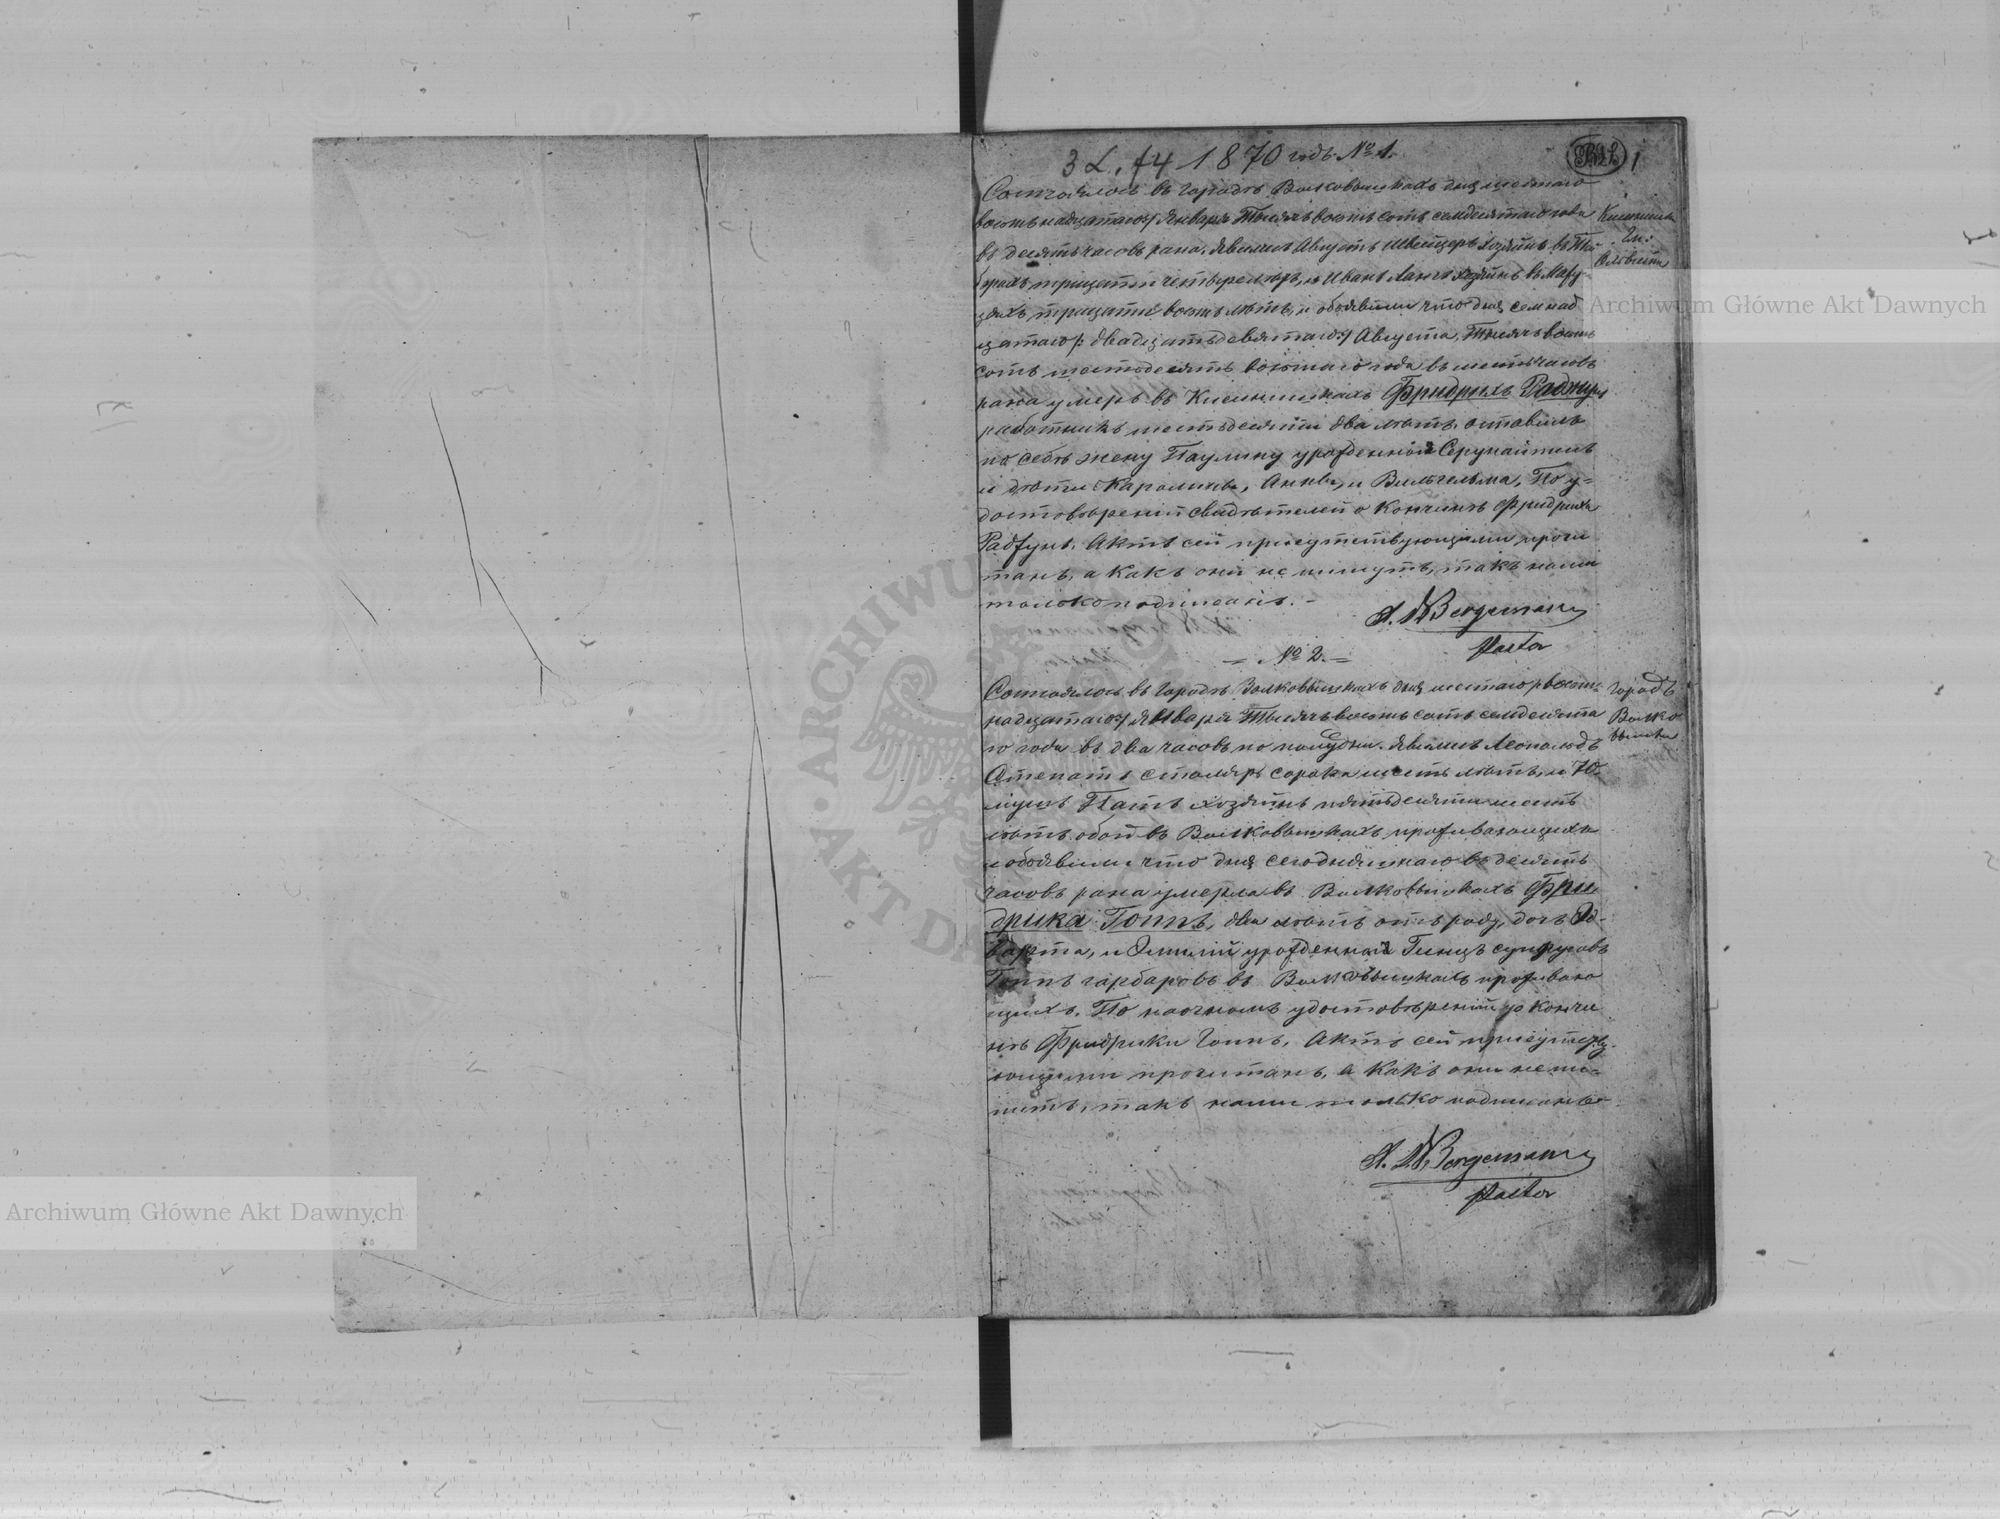 3 L. f4 1870 годъ № 1.
1
Состоялось въ городѣ Волковышкахъ дня шестаго
восемьнадцатаго/ Января Тысяча восемь сотъ семдесятаго года
въ десять часовъ рана, явились Августъ Швейцеръ хозяинъ въ
тридцати четыре лѣтъ, и Иванъ Лангъ хозяинъ въ Мазу-
цяхъ тридцати восемь лѣтъ, и объявили что дня семнад
цатаго/: двадцать девятаго:/ Августа, Тысяча восемь
сотъ шестьдесятъ восьмаго года въ шесть часовъ
рана умеръ въ Фридрихъ Раджунъ
работникъ шестьдесяти два лѣтъ, оставилъ
по себѣ жену Паулину урожденной
и дѣти Каролину, Анну, и Вильгельма, По у-
достовѣреніи свидѣтелей о кончинѣ Фридриха
Раджунъ, Актъ сей присутствующими прочи
танъ, а какъ они не пишутъ, такъ нами
только подписанъ. -
A. W. Bergemann
Pastor
= № 2. =
Состоялось въ городѣ Волковышкахъ дня шестаго/ восем-
надцатаго:/ Января Тысяча восемь сотъ семдесята
го года въ два часовъ по полудни. Явились Леопольдъ
столяръ сорока шесть лѣтъ, и Ю-
ліусъ Патъ хозяинъ пятьдесяти шесть
лѣтъ обои въ Волковышкахъ проживающихъ
и объявили что дня сегодняшнаго въ десять
часовъ рана умерла въ Волковышкахъ Фри
дрика Гоппъ, два лѣтъ отъ роду, дочь Эд-
варта, и Эмиліи урожденная Гинцъ супруговъ
Гоппъ гарбаровъ въ Волковышкахъ проживаю
щихъ. По наочномъ удостовѣреніи о кончи
нѣ Фридрики Гоппъ, Актъ сей присутству-
ющими прочитанъ, а какъ они не пи-
шутъ, такъ нами только подписанъ
A. W. Bergemann
Pastor
городъ
Волко
вышки
Archiwum Główne Akt Dawnych
Archiwum Główne Akt Dawnych